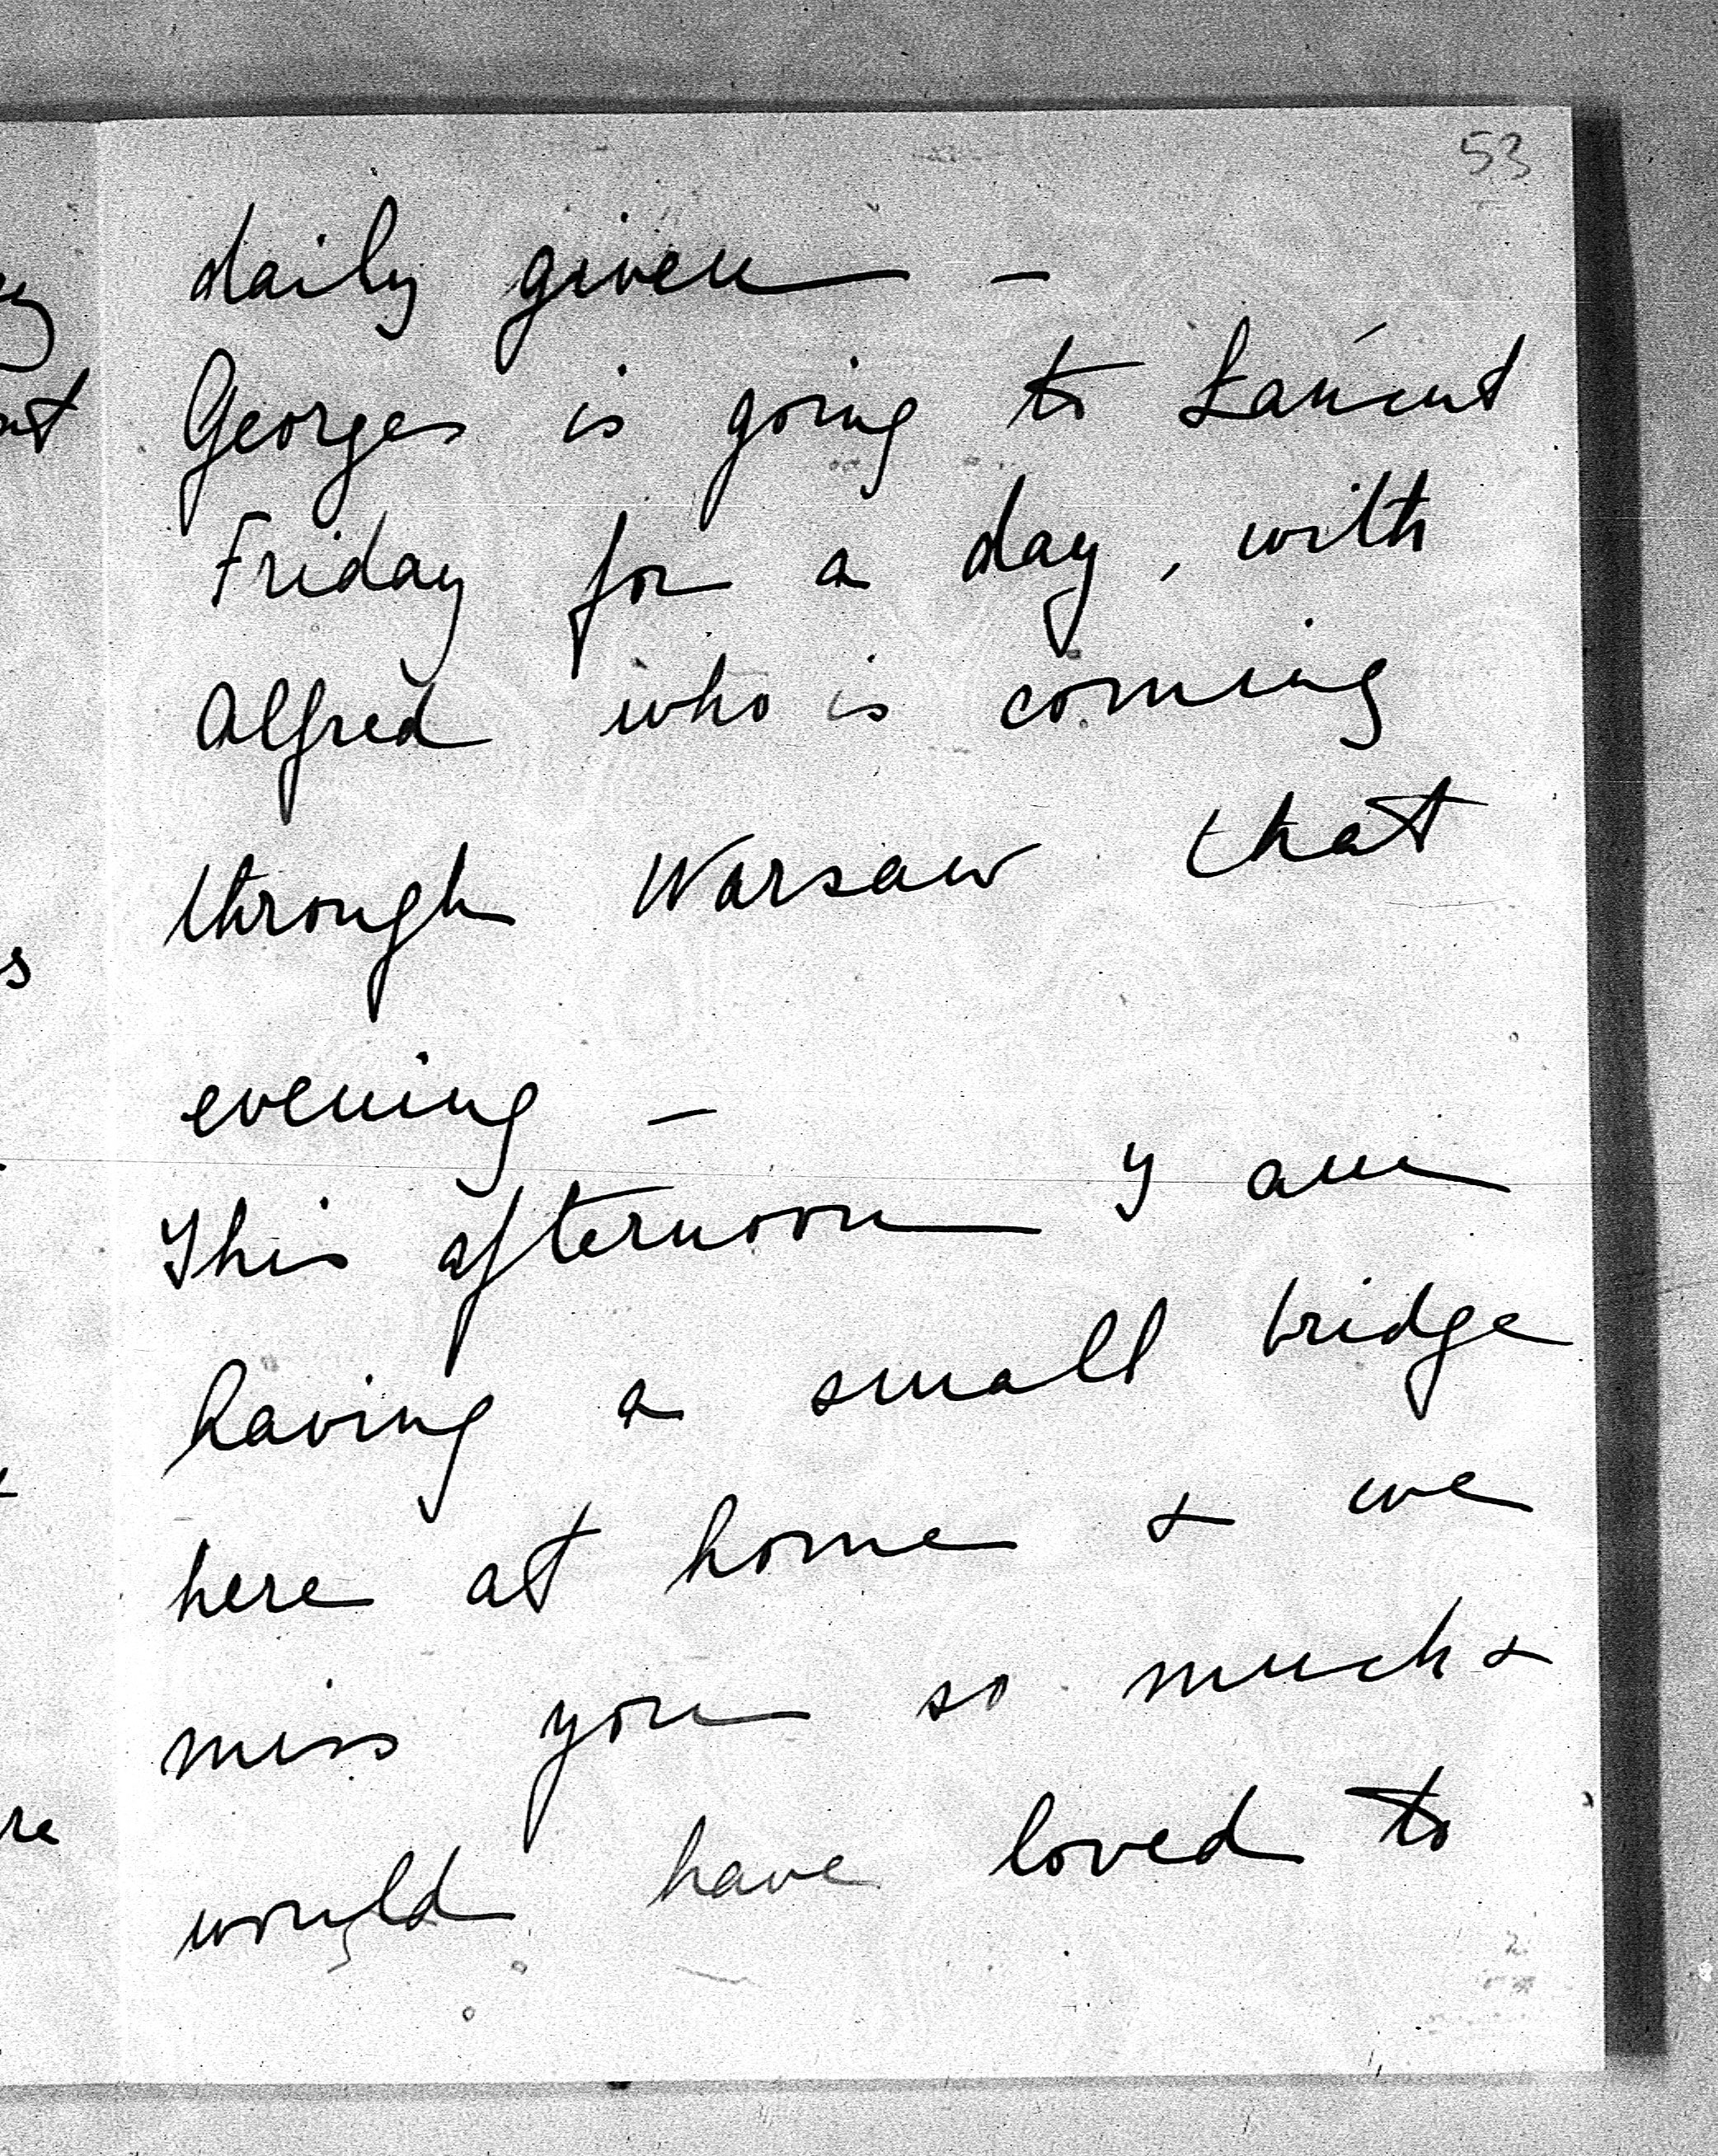 53
daily given –
Georges is going to Łańcut
Friday for a day, with
Alfred who is coming
through Warsaw that
evening –
This afternoon I am
having a small bridge
here at home & we
miss you so much &
would have loved to